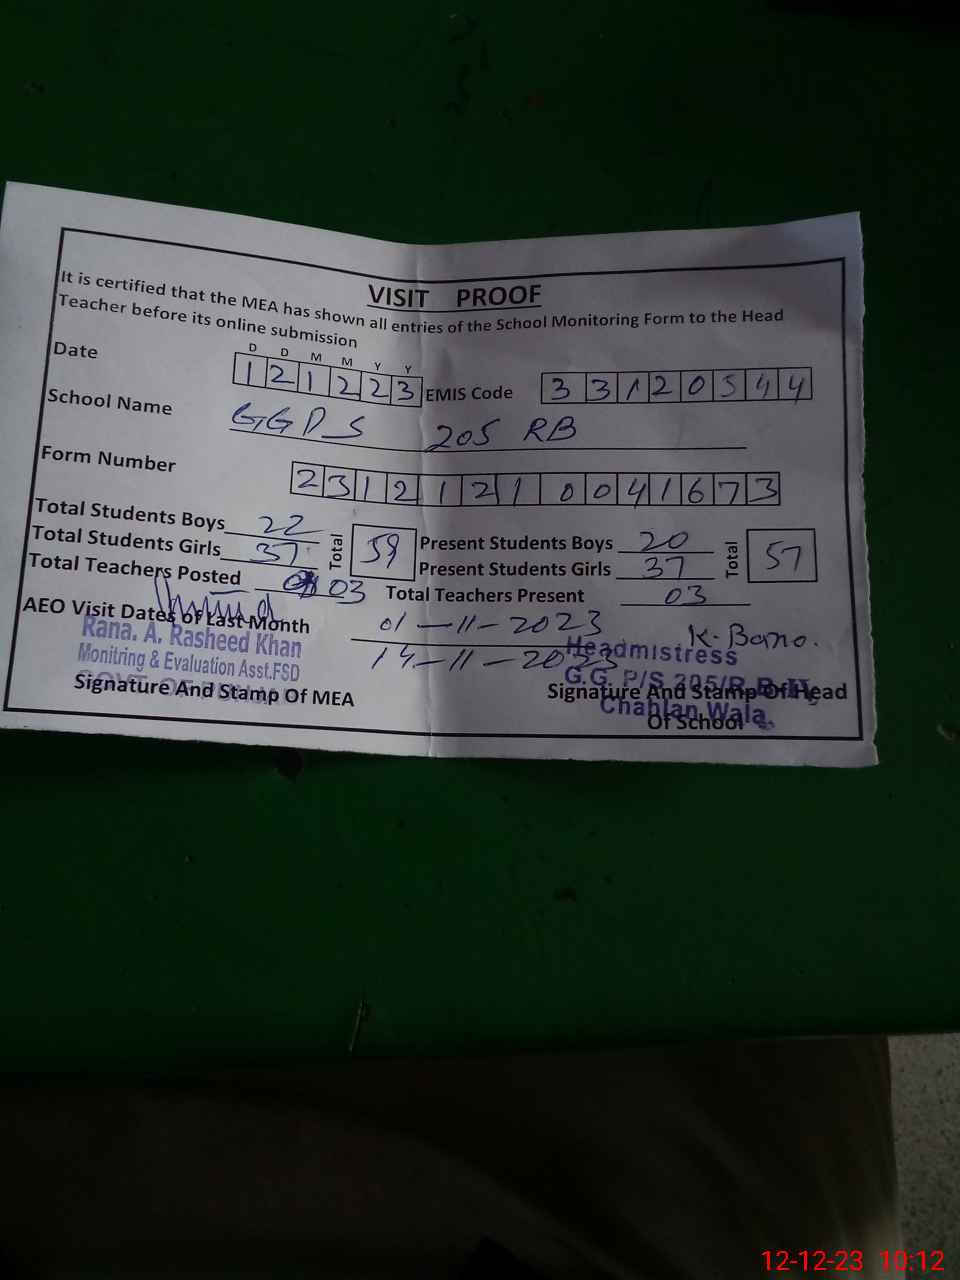 VISIT PROOF
It is certified that the MEA has shown all entries of the School Monitoring Form to the Head
Teacher before its online submission
D D M M Y Y
Date 1 2 1 2 2 3 EMIS Code 3 3 1 2 0 5 4 4
School Name GGPS 205 RB
Form Number 2 3 1 2 1 2 1 0 0 4 1 6 7 3
Total Students Boys 22 Total 59 Present Students Boys 20 Total 57
Total Students Girls 37 Present Students Girls 37
Total Teachers Posted 03 Total Teachers Present 03
AEO Visit Dates of Last Month 01-11-2023
14-11-2023
K. Bano.
Rana. A. Rasheed Khan
Monitring & Evaluation Asst.FSD
Signature And Stamp Of MEA
Headmistress
G.G. P/S 205/R.B-II,
Chahlan Wala.
Signature And Stamp Of Head
Of School
12-12-23 10:12